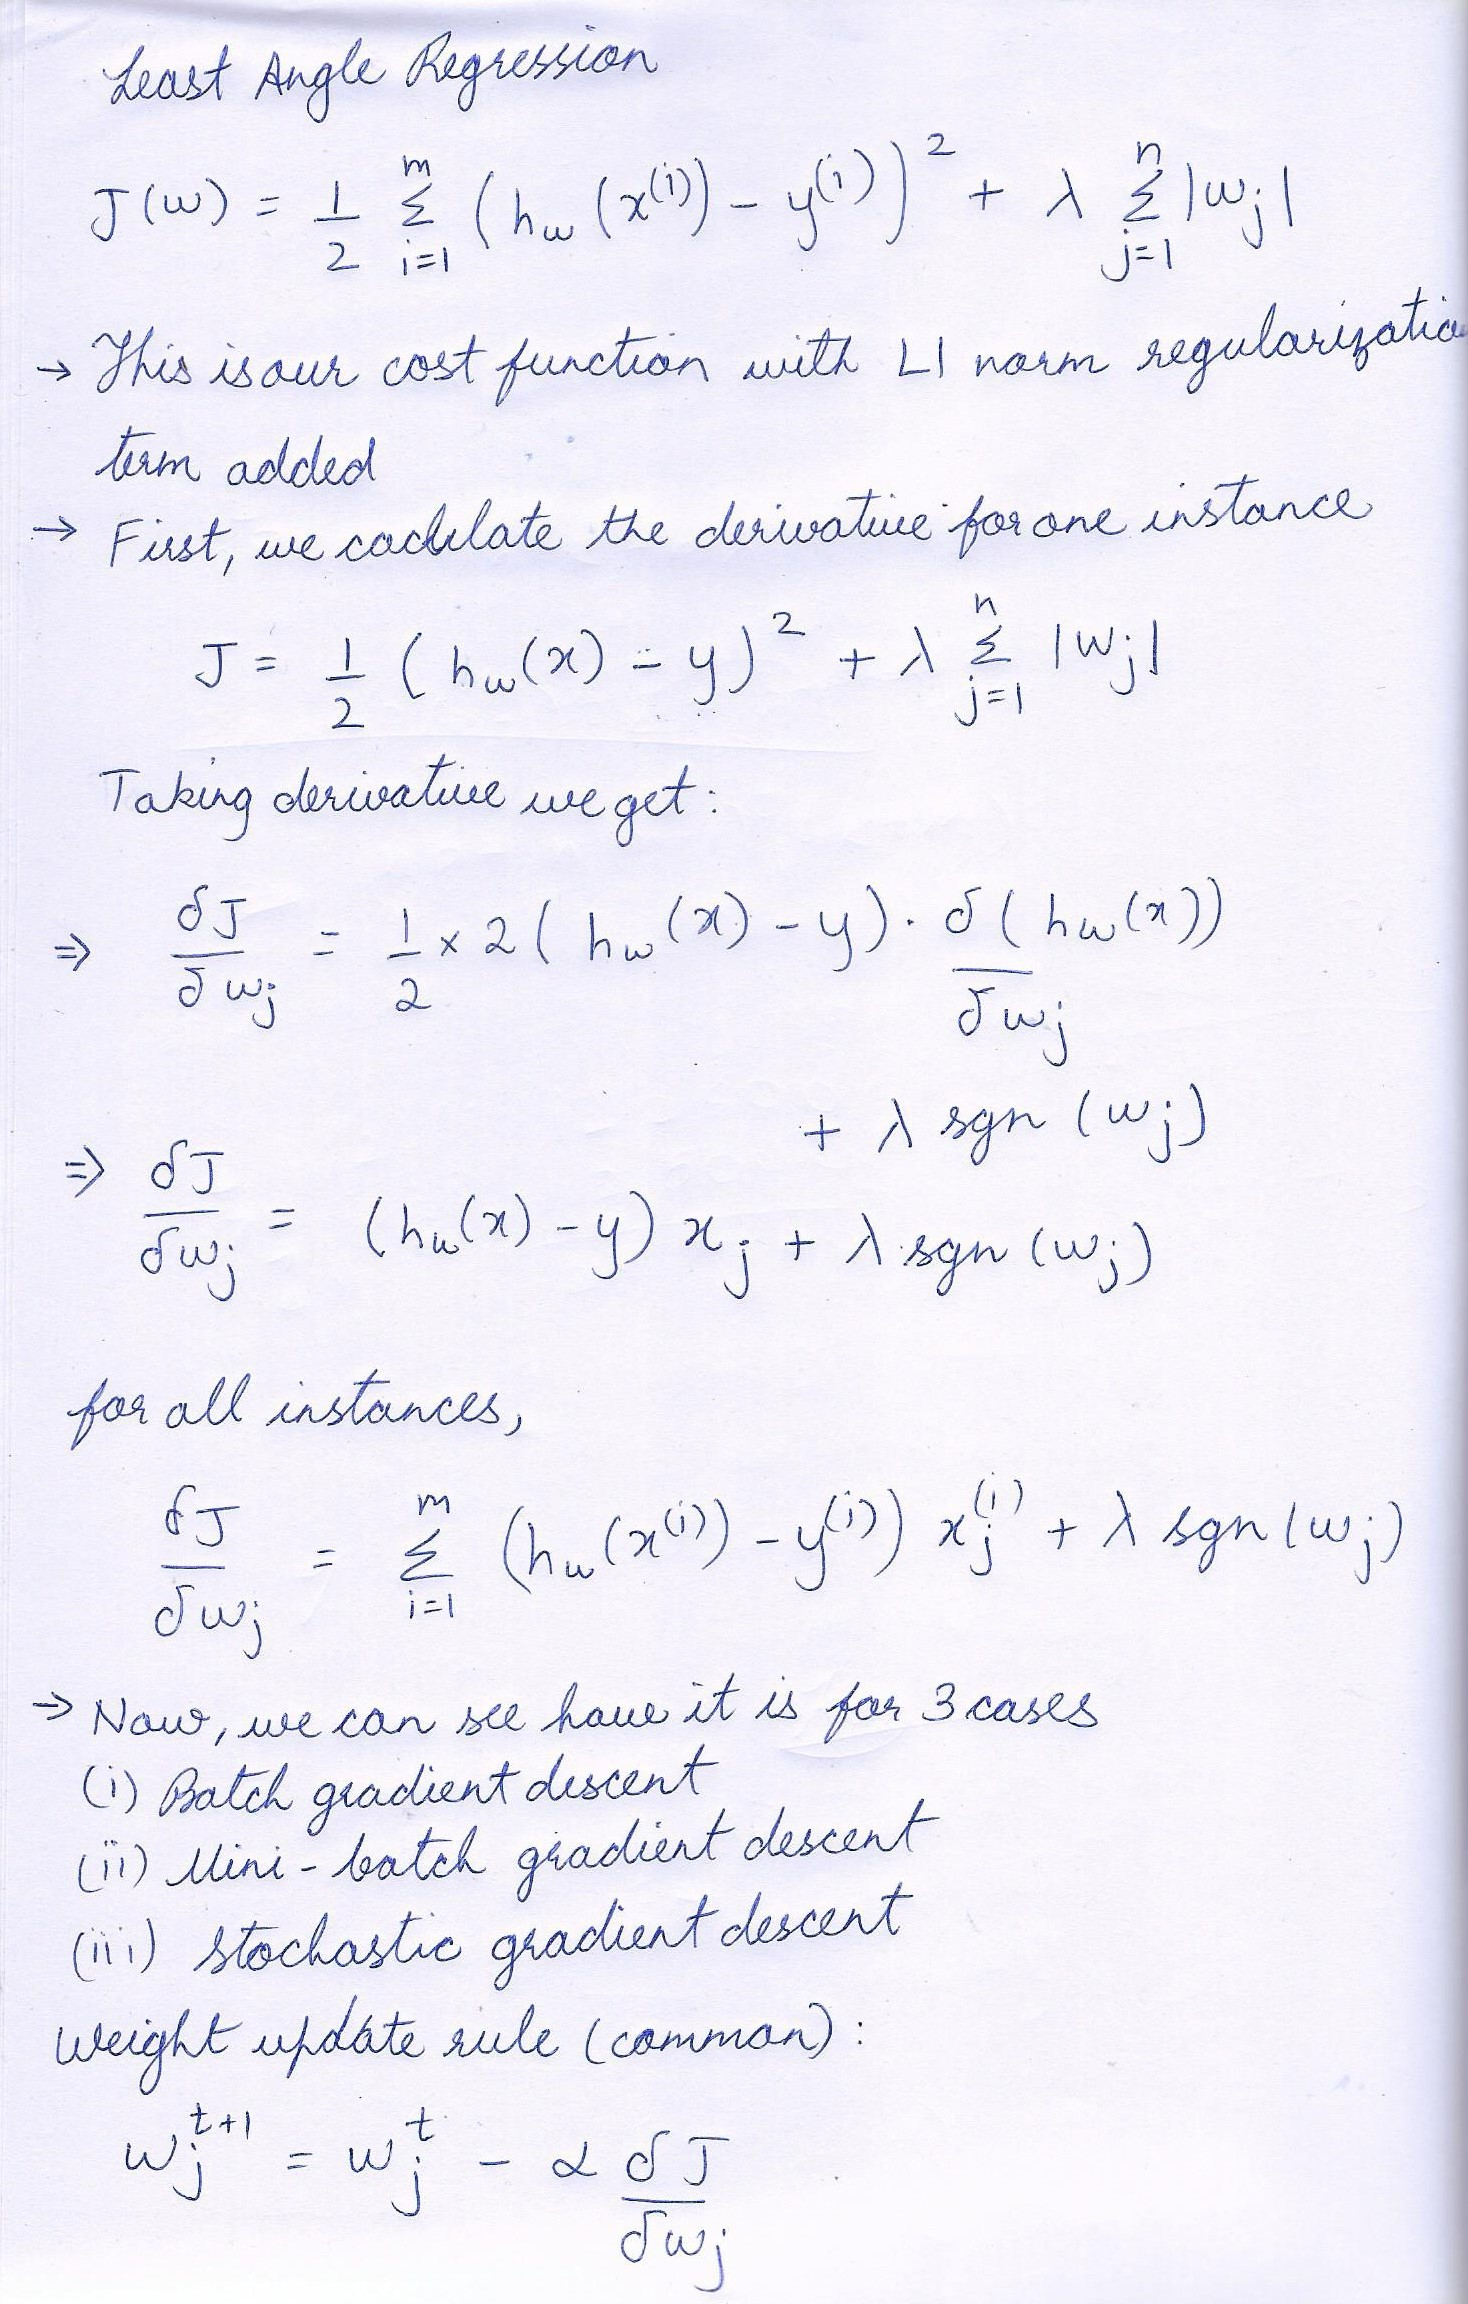 Least Angle Regression
J(w) = 1/2 Σ_{i=1}^{m} (h_w(x^(i)) - y^(i))^2 + λ Σ_{j=1}^{n} |w_j|
→ This is our cost function with L1 norm regularizatio
term added
→ First, we caclulate the derivative for one instance
J = 1/2 (h_w(x) - y)^2 + λ Σ_{j=1}^{n} |w_j|
Taking derivative we get:
⇒ δJ/δw_j = 1/2 × 2 (h_w(x) - y) . δ(h_w(x))/δw_j
+ λ sgn (w_j)
⇒ δJ/δw_j = (h_w(x) - y) x_j + λ sgn (w_j)
for all instances,
δJ/δw_j = Σ_{i=1}^{m} (h_w(x^(i)) - y^(i)) x_j^(i) + λ sgn (w_j)
→ Now, we can see how it is for 3 cases
(i) Batch gradient descent
(ii) Mini - batch gradient descent
(iii) Stochastic gradient descent
Weight update rule (common) :
w_j^{t+1} = w_j^t - α δJ/δw_j